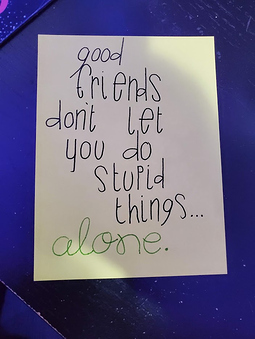 good
friends
don't let
you do
stupid
things...
alone.